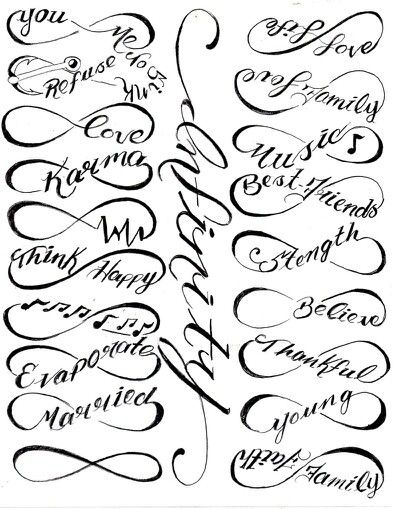 You Me
Refuse To Sink
love
Karma
Think Happy
Evaporate
Married
Infinity
Life Love
Love Family
Music
Best Friends
Stength
Believe
Thankful
young
Faith Family